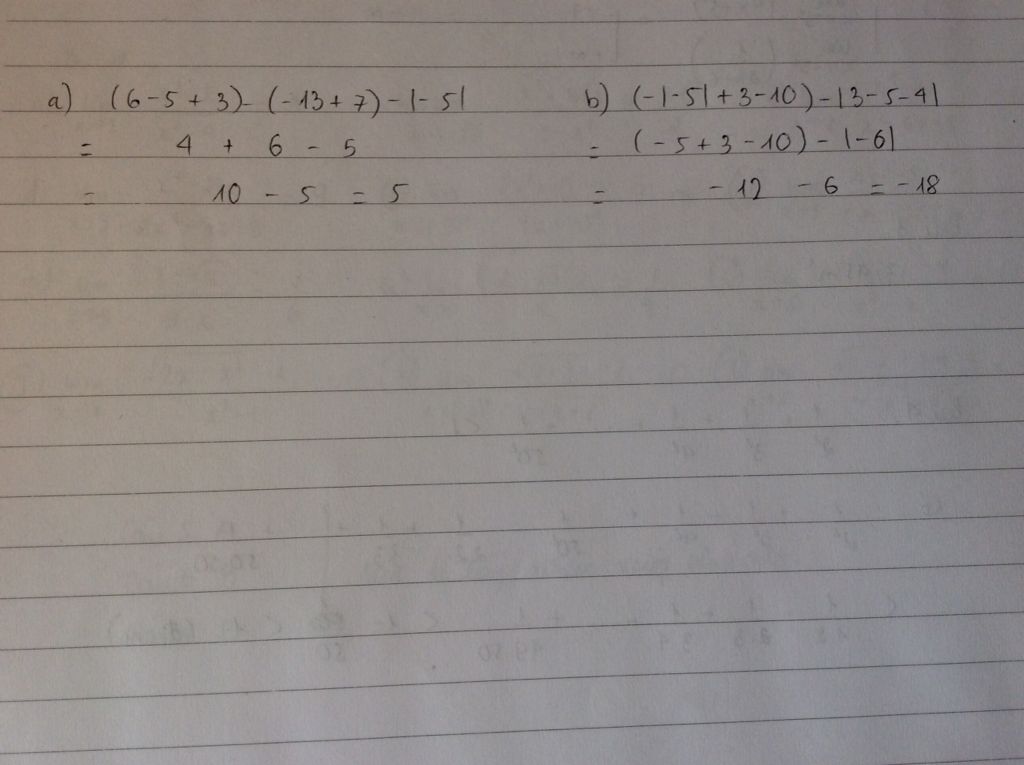 a) (6-5+3)-(-13+7)-|-5|
= 4 + 6 - 5
= 10 - 5 = 5
b) (-|-5|+3-10)-|3-5-4|
= (-5+3-10)-|-6|
= -12 -6 = -18